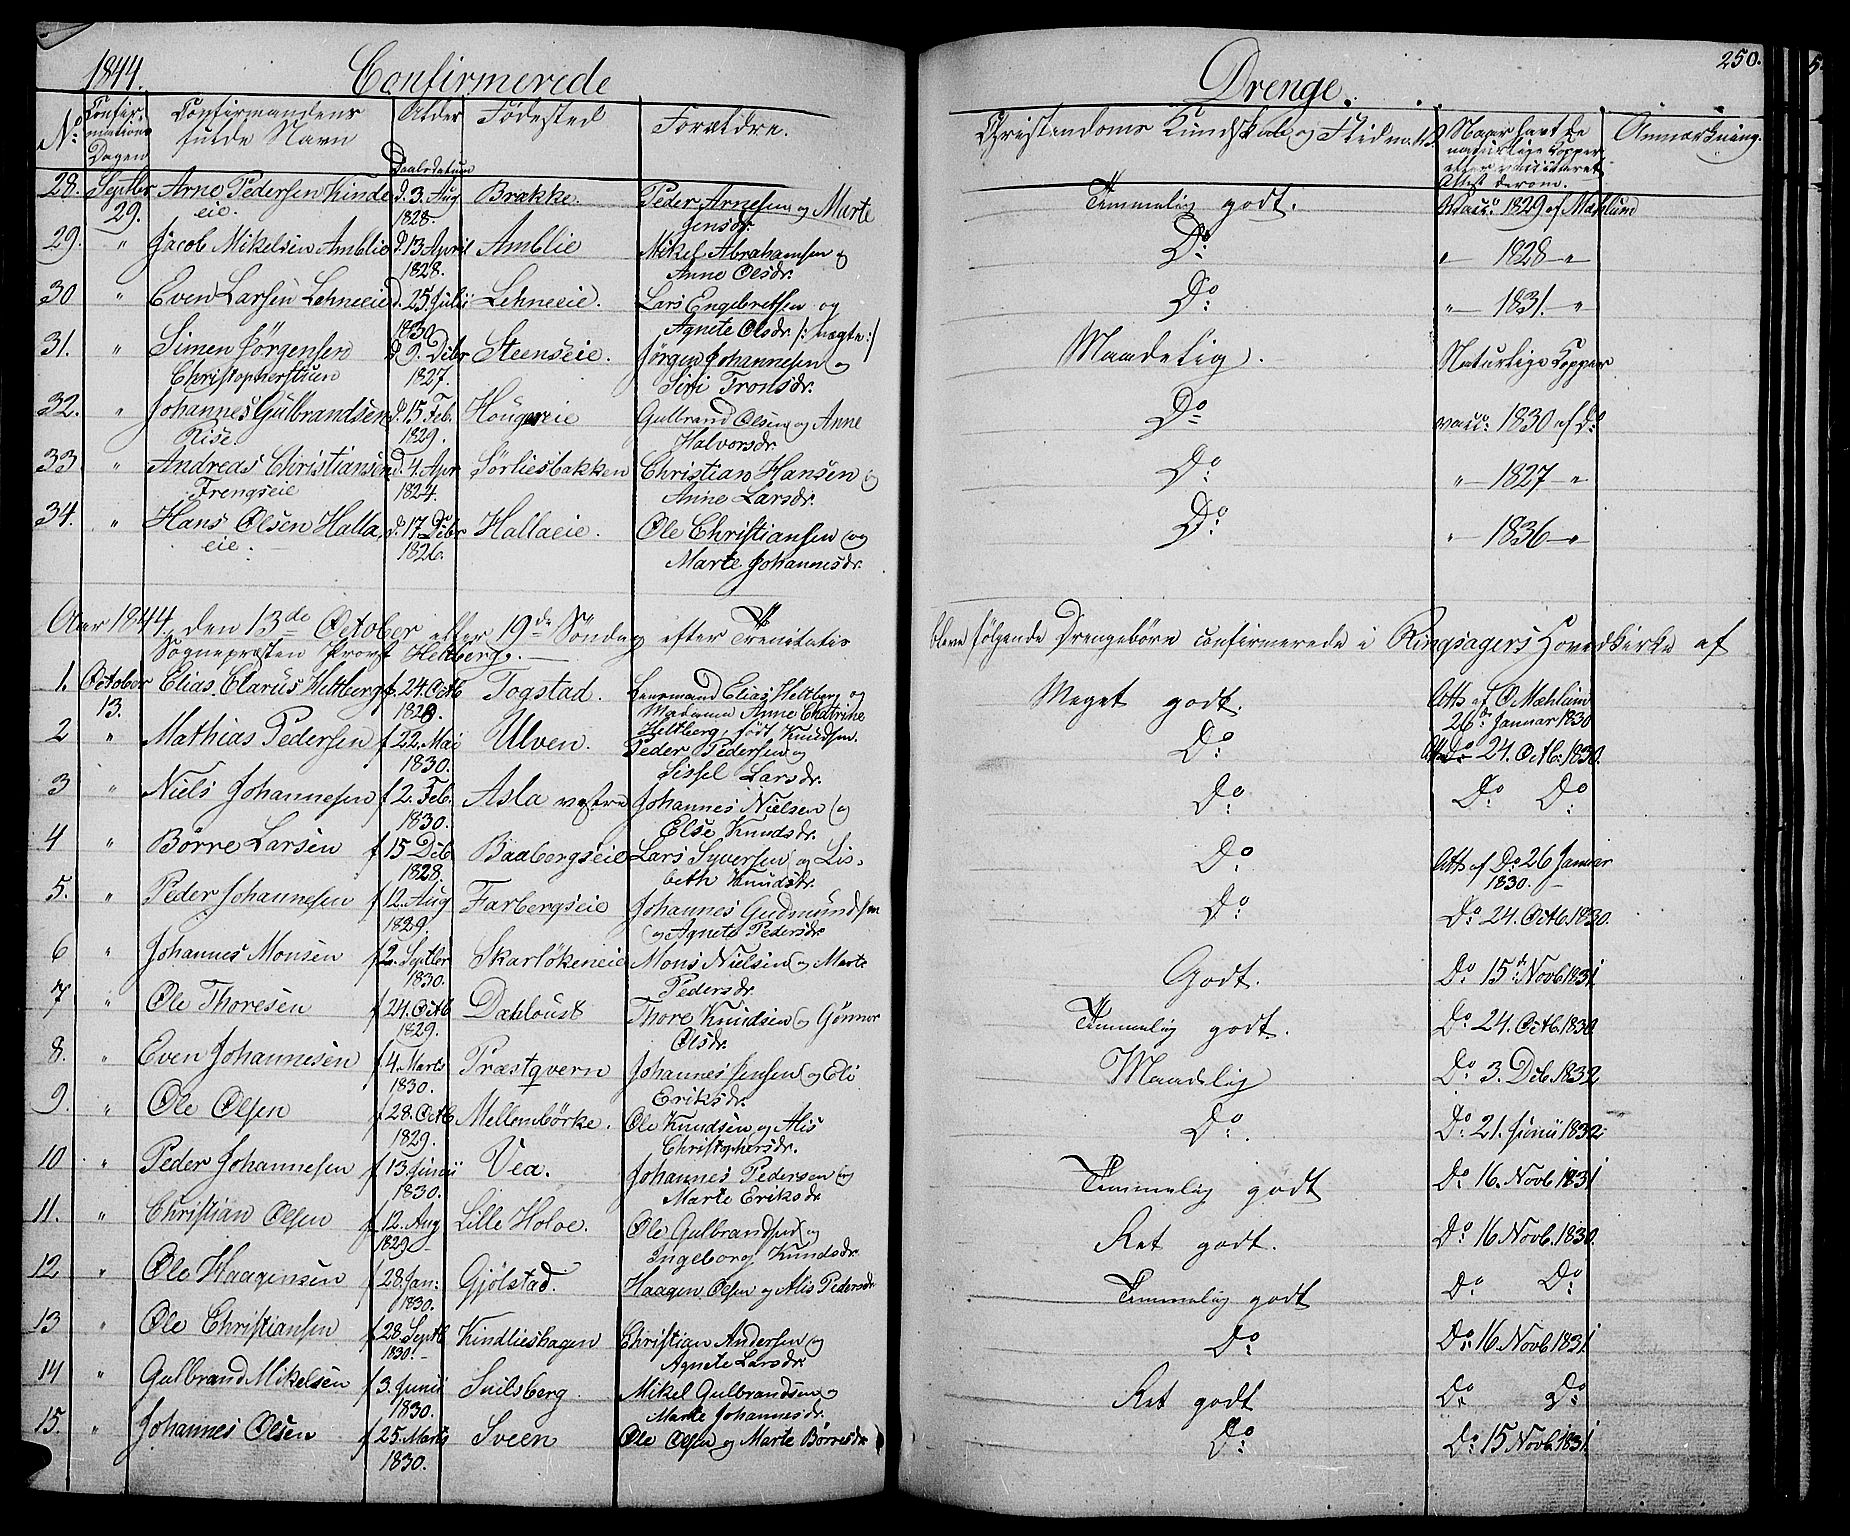 1844. Confirmerede Drenge. 250.
No: Confir- Confirmandens Alder Fødested Forældre. Christendoms Kundskab og Flid m.v. Naar havt de Anmærkning.
mations fulde Navn naturlige Kopper
Dagen Daabsdatum eller vaccineret
Attest derom.
28. Septbr Arne Pedersen Kinde d. 3. Aug Brække. Peder Arnesen og Marte Temmelig godt. Vacc: 1829 af Mæhlum
29. eie. 1828. Jensdr.
29. " Jacob Mikelsen Amblie d. 13 April Amblie Mikel Abrahamsen og Do: " 1828 "
1828. Anne Olsdr.
30 " Even Larsen Lehneeie d. 25 Julii Lehneeie. Lars Engebretsen og Do: " 1831. "
1830. Agnete Olsdr. /: uægte :/
31. " Simen Jørgensen d. 9. Debr Steenseie. Jørgen Johannesen og Maadelig. Naturlige Kopper
Christopherstuen 1827. Siri Tronsdr.
32. " Johannes Gulbrandsen d. 15. Feb. Hougereie Gulbrand Olsen og Anne Do vacc: 1830 af Do
Rise. 1829. Halvorsdr.
33 " Andreas Christiansen d. 4. Apr Sørliesbakken Christian Hansen og Do " 1827 "
Frengseie 1824. Anne Larsdr.
34. " Hans Olsen Halla d. 17 Debr Hallaeie. Ole Christiansen og Do: " 1836 "
eie. 1826. Marte Johannesdr.
Aar 1844, den 13de October eller 19de Søndag efter Trenitatis bleve følgende Drengebørn confirmerede i Ringsagers Hovedkirke af
Sognepræsten Provst Heltberg.
1. October Elias Clarus Heltberg f. 24. Octb Togstad. Lensmand Elias Heltberg og Meget godt. Atts af O Mæhlum
13. 1829. Madame Anne Chatrine 26de Januar 1830
Heltberg, født Knudsen.
2 " Mathias Pedersen f 22. Mai Ulven. Peder Pedersen og Do: Att Do 24. Octb. 1830.
1830. Sissel Larsdr.
3 " Niels Johannesen f 2. Feb. Asla vestre Johannes Nielsen og Do: Do: Do:
1830. Else Knudsdr.
4 " Børre Larsen f 15 Deb. Baabergseie Lars Syversen og Lis- Do: Atts af Do: 26 Januar
1828. beth Knudsdr. 1830.
5. " Peder Johannesen f 12. Aug Farbergseie Johannes Gudmundsen Do: Do: 24. Octb. 1830.
1829. og Agnete Pedersdr.
6 " Johannes Monsen f 2. Septbr Skarløkeneie Mons Nielsen og Marte Godt. Do: 15de Novb. 1831
1830. Pedersdr.
7 " Ole Thoresen f 24. Octb Dæhloust Thore Knudsen og Gønner Temmelig godt. Do: 24. Octb. 1830
1829. Olsdr.
8. " Even Johannesen f 4. Marts Præstqvern Johannes Jensen og Eli Maadelig Do: 3. Deb. 1832
1830. Eriksdr.
9. " Ole Olsen f 28. Octb Mellembørke. Ole Knudsen og Alis Do: Do: 21. Junii 1832
1829. Christophersdr.
10 " Peder Johannesen f 13. Junii Vea. Johannes Pedersen og Temmelig godt Do: 16. Novb. 1831
1830. Marte Eriksdr
11. " Christian Olsen f 12. Aug Lille Holoe. Ole Gulbrandsen og Ret godt. Do: 16 Novb. 1830.
1829 Ingeborg Knudsdr
12 " Ole Haagensen f 28. Jan: Gjølstad. Haagen Olsen og Alis Pedersdr Temmelig godt Do: Do:
1830.
13 " Ole Christiansen f 28. Septb Kindlieshagen Christian Andersen og Do: Do: 16. Novb. 1831
1830. Agnete Larsdr.
14 " Gulbrand Mikelsen f 3. Junii Snilsberg Mikel Gulbrandsen og Ret godt Do: Do:
1830. Marte Johannesdr.
15. " Johannes Olsen f 25. Marts Sveen Ole Olsen og Marte Børresdr Do: Do: 15 Novb. 1831
1830.